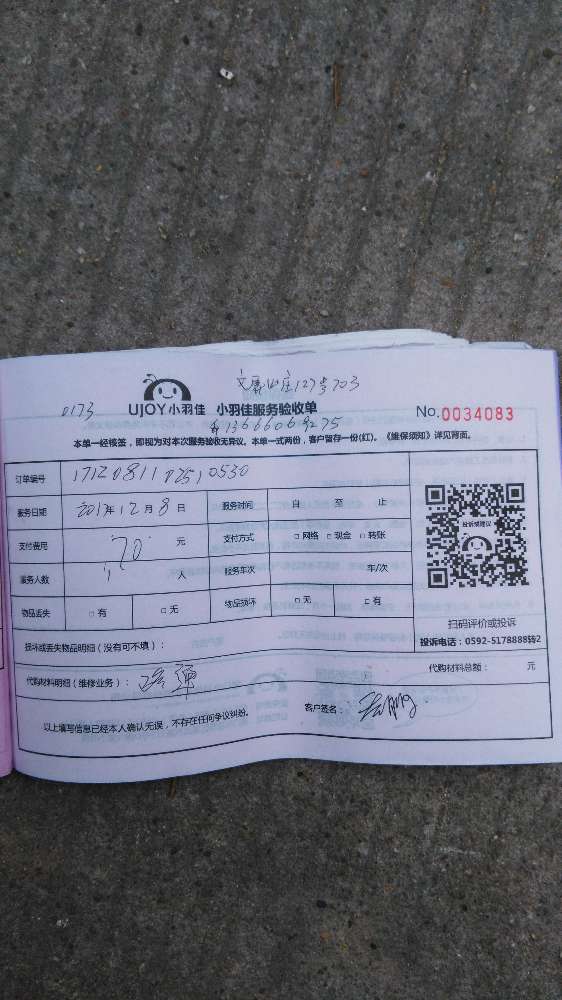 0173
127号703
UJOY小羽佳 小羽佳服务验收单 No.0034083
本单一经核签，即视为对本次服务验收无异议。本单一式两份，客户留存一份(红)。《维保须知》详见背面。
订单编号
服务日期 2017年12月8日 服务时间 自 至 止
支付费用 70 元 支付方式 □ 网络 □ 现金 □ 转账
服务人数 1 人 服务车次 车/次
物品丢失 □ 有 □ 无 物品损坏 □ 无 □ 有
投诉或建议
扫码评价或投诉
投诉电话：0592-5178888转2
损坏或丢失物品明细（没有可不填）：
代购材料明细（维修业务）： 代购材料总额： 元
以上填写信息已经本人确认无误，不存在任何争议纠纷。 客户签名：